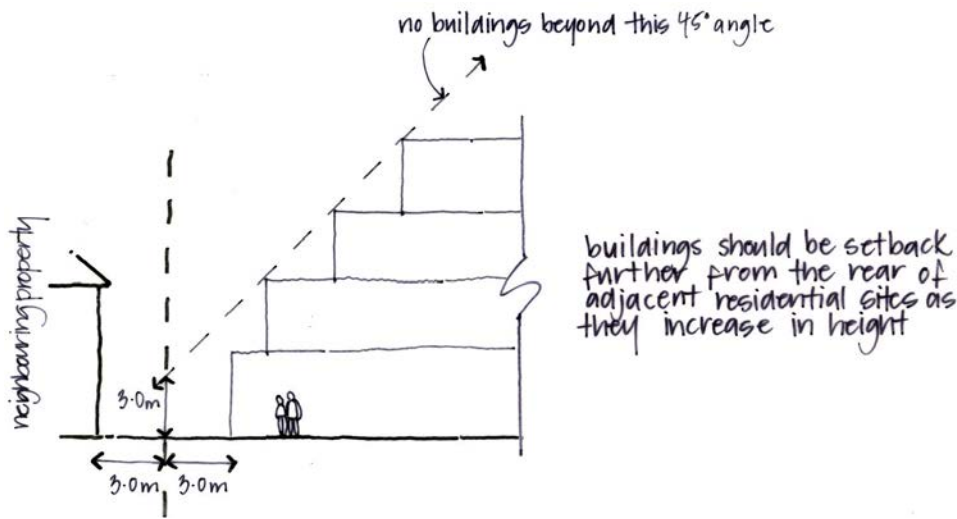 no buildings beyond this 45° angle
neighbouring property
buildings should be setback
further from the rear of
adjacent residential sites as
they increase in height
3.0m
3.0m
3.0m